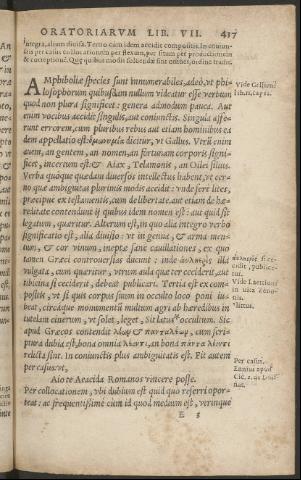 ORATORIARVM LIB. VII. 437
integra, alium diuisa. Tertio cùm idem accidit compositis. In coniunctis
per casus collocationem per flexum, per situm per productionem
& correptionem. Quę quibus modis soluendæ sint omnes, ordine tradit.
AMphiboliæ species sunt innumerabiles, adeò, vt philosophorum
quibusdam nullum videatur esse verbum
quod non plura significet: genera admodum pauca. Aut
enim vocibus accidit singulis, aut coniunctis. Singula afferunt
errorem, cum pluribus rebus aut etiam hominibus eadem
appellatio est: ὁμωνυμία dicitur, vt Gallus. Vtrū enim
auem, an gentem, an nomen, an fortunam corporis significet,
incertum est: & Aiax, Telamonis, an Oilei filius.
Verba quóque quædam diuersos intellectus habent, vt cerno:
quæ ambiguitas plurimis modis accidit: vnde ferè lites,
præcipuè ex testamentis, cum de libertate, aut etiam de hæreditate
contendunt ij quibus idem nomen est: aut quid sit
legatum, quæritur. Alterum est, in quo alia integro verbo
significatio est, alia diuiso: vt in genua, & arma mentum,
& cor vinum, ineptæ sanè cauillationes, ex quo
tamen Græci controuersias ducunt: inde αὐλητρὶς illa
vulgata, cum quæritur, vtrum aula quæ ter ceciderit, aut
tibicina si ceciderit, debeat publicari. Tertia est ex compositis,
vt si quis corpus suum in occulto loco poni iubeat,
circáque monumentū multum agri ab hæredibus in
tutelam cinerum, vt solet, leget, Sit latus occultum. Sic
apud Græcos contendit λέων & πανταλέων, cum scriptura
dubia est, bona omnia λέοντι, an bona πάντα λέοντι
relicta sint. In coniunctis plus ambiguitatis est. Fit autem
per casus, vt,
Aio te Aeacida Romanos vincere posse.
Per collocationem, vbi dubium est quid quo referri oporteat:
ac frequentissimè cùm id quod medium est, vtrinque
E 3
Vide Gellium
lib. 11. cap. 12.
Vide Laertium
in vita Zenonis.
Per casus.
Ennius apud
Cic. 2. de Diuinat.